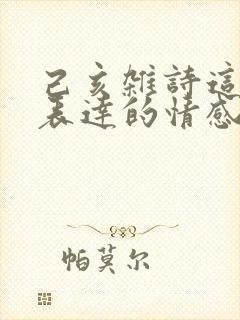 己亥雜詩這
表達的情感
帕莫尔